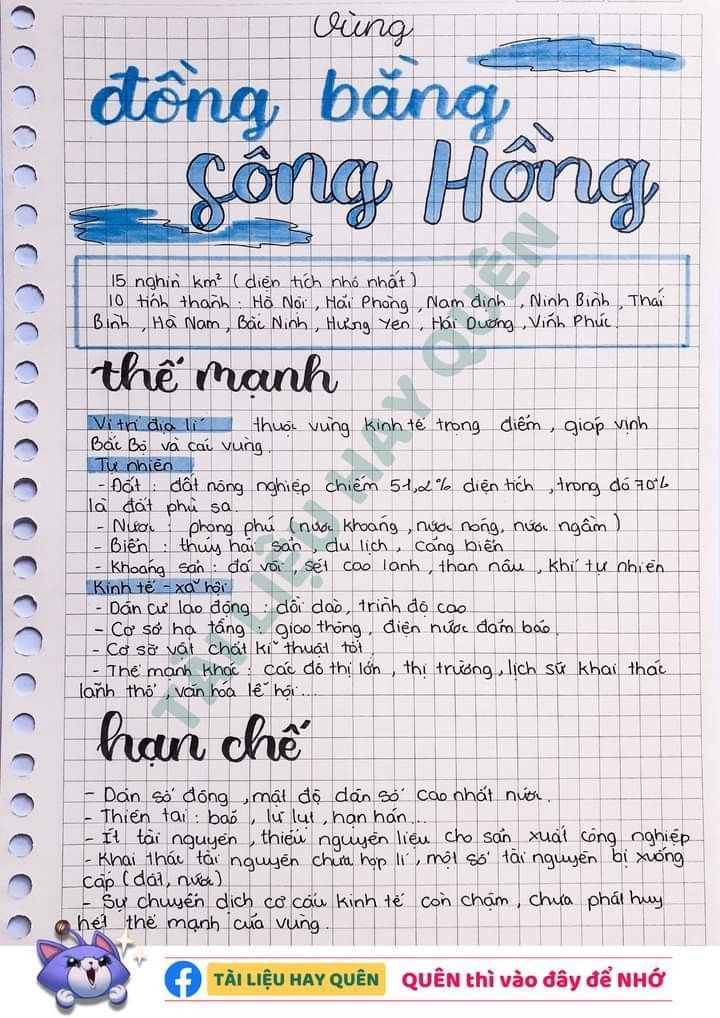 Vùng
đồng bằng
Sông Hồng
15 nghìn km² (diện tích nhỏ nhất)
10 tỉnh thành : Hà Nội , Hải Phòng , Nam định , Ninh Bình , Thái
Bình , Hà Nam , Bắc Ninh , Hưng Yên , Hải Dương , Vĩnh Phúc .
thế mạnh
Vị trí địa lí thuộc vùng kinh tế trọng điểm , giáp vịnh
Bắc Bộ và các vùng .
Tự nhiên
- Đất : đất nông nghiệp chiếm 51,2% diện tích , trong đó 70%
là đất phù sa .
- Nước : phong phú (nước khoáng , nước nóng, nước ngầm)
- Biển : thủy hải sản , du lịch , cảng biển
- Khoáng sản : đá vôi , sét cao lanh , than nâu , khí tự nhiên
Kinh tế - xã hội
- Dân cư lao động : dồi dào, trình độ cao
- Cơ sở hạ tầng : giao thông , điện nước đảm bảo .
- Cơ sở vật chất kĩ thuật tốt .
- Thế mạnh khác : các đô thị lớn , thị trường , lịch sử khai thác
lãnh thổ , văn hóa lễ hội ...
hạn chế
- Dân số đông , mật độ dân số cao nhất nước .
- Thiên tai : bão , lũ lụt , hạn hán ...
- Ít tài nguyên , thiếu nguyên liệu cho sản xuất công nghiệp
- Khai thác tài nguyên chưa hợp lí , một số tài nguyên bị xuống
cấp (đất, nước)
- Sự chuyển dịch cơ cấu kinh tế còn chậm , chưa phát huy
hết thế mạnh của vùng .
TÀI LIỆU HAY QUÊN
TÀI LIỆU HAY QUÊN QUÊN thì vào đây để NHỚ